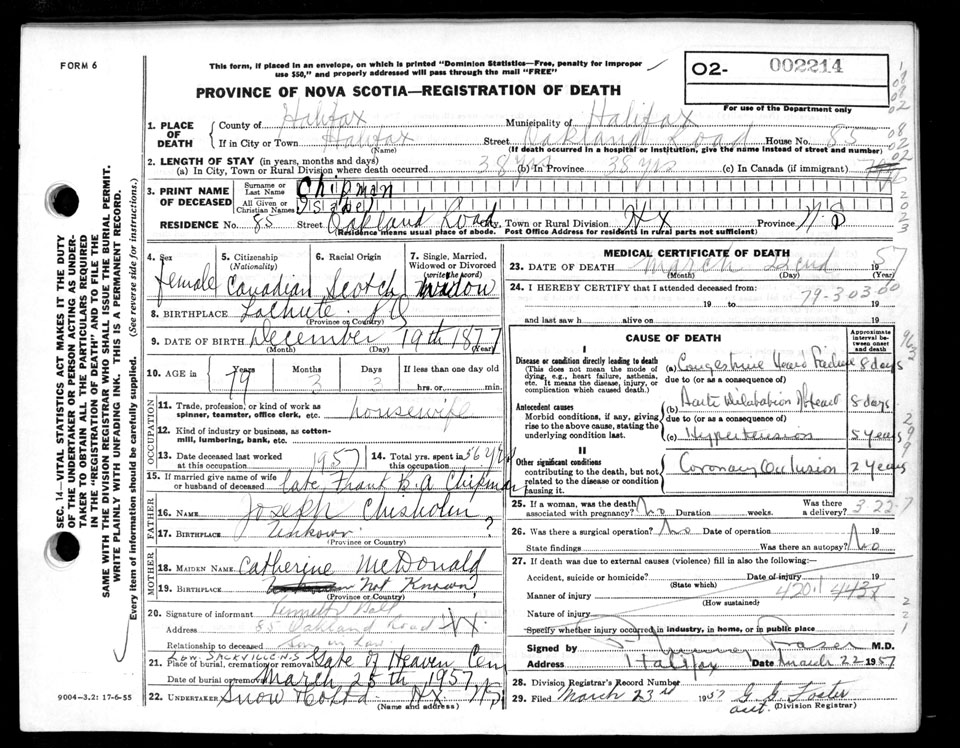 FORM 6
This form, if placed in an envelope, on which is printed "Dominion Statistics—Free, penalty for improper
use $50," and properly addressed will pass through the mail "FREE"
02- 002214
For use of the Department only
PROVINCE OF NOVA SCOTIA—REGISTRATION OF DEATH
1. PLACE OF DEATH
County of Halifax Municipality of Halifax
If in City or Town Halifax Street Oakland Road House No. 85
(Name) (If death occurred in a hospital or institution, give the name instead of street and number)
2. LENGTH OF STAY (in years, months and days)
(a) In City, Town or Rural Division where death occurred 38 yrs (b) In Province 38 yrs (c) In Canada (if immigrant)
3. PRINT NAME OF DECEASED
Surname or Last Name Chipman
All Given or Christian Names Isabel
RESIDENCE No. 85 Street Oakland Road City, Town or Rural Division Hx Province N.S
(Residence means usual place of abode. Post Office Address for residents in rural parts not sufficient)
4. Sex female
5. Citizenship (Nationality) Canadian
6. Racial Origin Scotch
7. Single, Married, Widowed or Divorced (write the word) Widow
8. BIRTHPLACE Lachute
(Province or Country)
9. DATE OF BIRTH December 19th 1877
(Month) (Day) (Year)
10. AGE in 79 Years 3 Months 3 Days If less than one day old
hrs. or min.
OCCUPATION
11. Trade, profession, or kind of work as spinner, teamster, office clerk, etc. housewife
12. Kind of industry or business, as cotton-mill, lumbering, bank, etc.
13. Date deceased last worked at this occupation 1957
14. Total yrs. spent in this occupation 56 yrs
15. If married give name of wife or husband of deceased late Frank B.A Chipman
FATHER
16. NAME Joseph Chisholm
17. BIRTHPLACE Unknown ?
(Province or Country)
MOTHER
18. MAIDEN NAME Catherine McDonald
19. BIRTHPLACE Not Known ?
(Province or Country)
20. Signature of informant
Address 85 Oakland Road Hx
Relationship to deceased Son in Law
Low. Sackville N.S
21. Place of burial, cremation or removal Gate of Heaven Cem
Date of burial or removal March 25th 1957
22. UNDERTAKER Snow Co Ltd Hx N.S
(Name and address)
MEDICAL CERTIFICATE OF DEATH
23. DATE OF DEATH March 22nd 1957
(Month) (Day) (Year)
24. I HEREBY CERTIFY that I attended deceased from:
19 to 19
79-303.00
and last saw h alive on 19
CAUSE OF DEATH
Approximate interval between onset and death
I
Disease or condition directly leading to death
(This does not mean the mode of dying, e.g., heart failure, asthenia, etc. It means the disease, injury, or complication which caused death.)
(a) Congestive Heart Failure 8 days
due to (or as a consequence of)
Antecedent causes
Morbid conditions, if any, giving rise to the above cause, stating the underlying condition last.
(b) Acute Dilatation of Heart 8 days
due to (or as a consequence of)
(c) Hypertension 5 years
II
Other significant conditions
contributing to the death, but not related to the disease or condition causing it.
Coronary Occlusion 2 years
25. If a woman, was the death associated with pregnancy? No Duration weeks. Was there a delivery? 3 22 7
26. Was there a surgical operation? No Date of operation
State findings Was there an autopsy? No
27. If death was due to external causes (violence) fill in also the following:
Accident, suicide or homicide? Date of injury 19
(State which)
Manner of injury 420.1 443X
(How sustained)
Nature of injury
Specify whether injury occurred in industry, in home, or in public place
Signed by M.D.
Address Halifax Date March 22 1957
28. Division Registrar's Record Number
29. Filed March 23rd 1957 G. G. Foster
asst. (Division Registrar)
SEC. 14—VITAL STATISTICS ACT MAKES IT THE DUTY
OF THE UNDERTAKER OR PERSON ACTING AS UNDER-
TAKER TO OBTAIN ALL THE PARTICULARS REQUIRED
IN THE "REGISTRATION OF DEATH" AND TO FILE THE
SAME WITH THE DIVISION REGISTRAR WHO SHALL ISSUE THE BURIAL PERMIT.
WRITE PLAINLY WITH UNFADING INK. THIS IS A PERMANENT RECORD.
Every item of information should be carefully supplied. (See reverse side for instructions.)
9004-3.2: 17-6-55